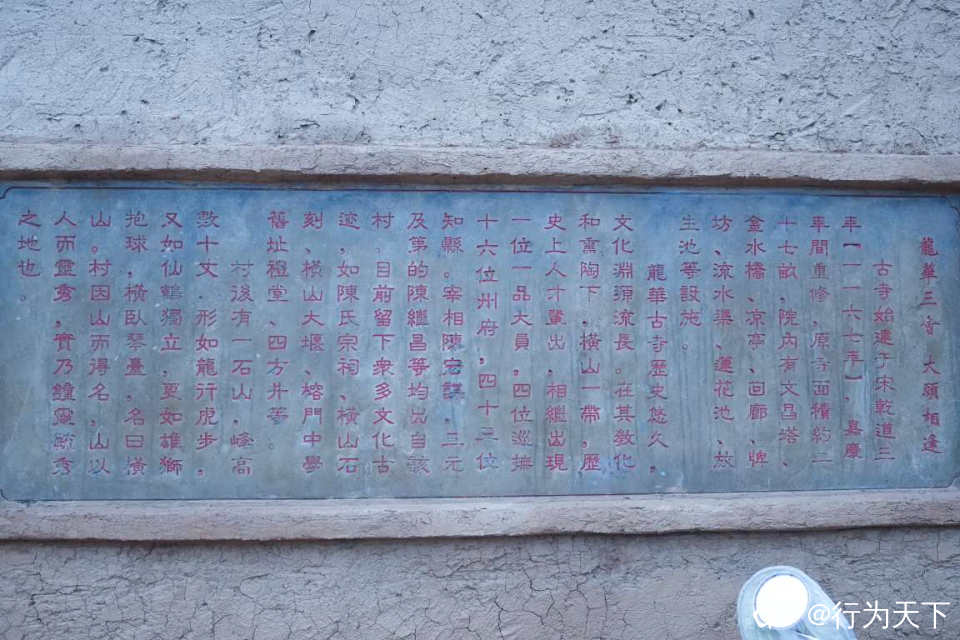 龍華三會 大願相逢
古寺始建于宋乾道三
年【一一六七年】，嘉慶
年間重修，原寺面積約二
十七畝，院內有文昌塔、
金水橋、凉亭、回廊、牌
坊、流水渠、蓮花池、放
生池等設施。
龍華古寺歷史悠久，
文化淵源流長。在其教化
和熏陶下，橫山一帶，歷
史上人才輩出，相繼出現
一位一品大員，四位巡撫
十六位州府，四十三位
知縣。宰相陳宏謀，三元
及第的陳繼昌等均出自該
村。目前留下衆多文化古
迹，如陳氏宗祠、橫山石
刻、橫山大堰、榕門中學
舊址禮堂、四方井等。
村後有一石山，峰高
數十丈.形如龍行虎步，
又如仙鶴獨立，更如雄獅
抱球，橫卧琴臺，名曰橫
山。村因山而得名，山以
人而靈秀，實乃鐘靈毓秀
之地也。
@行为天下